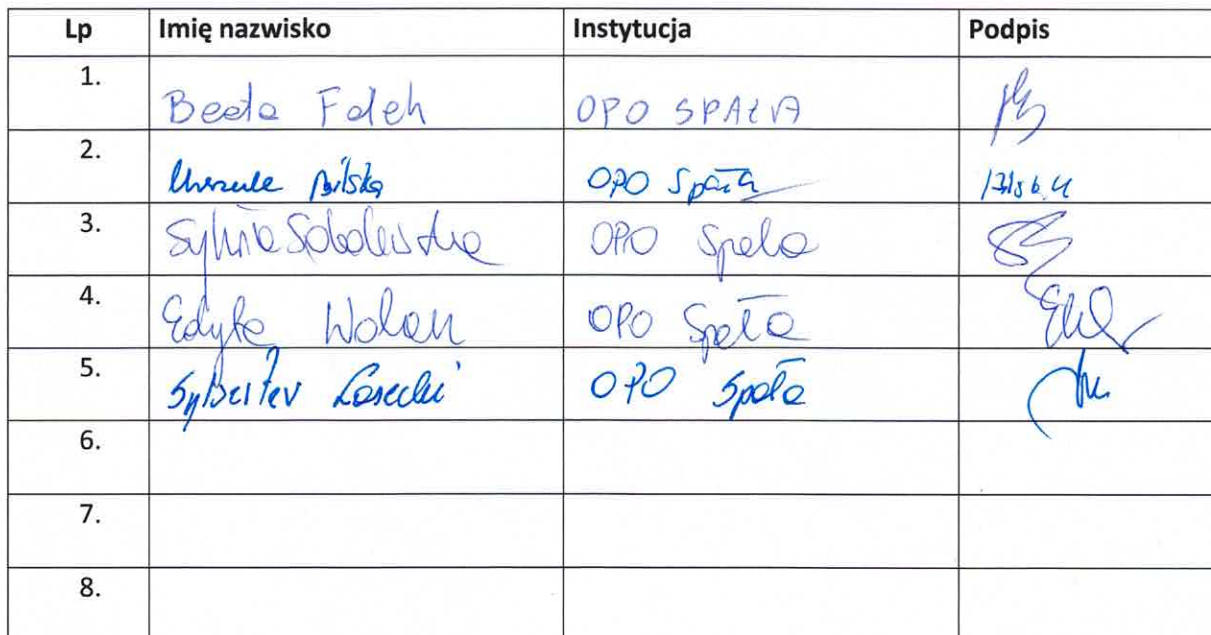 Lp Imię nazwisko Instytucja Podpis
1. Beata Fałek OPO SPAŁA
2. Urszula Bilska OPO Spała
3. Sylwia Sobolewska OPO Spała
4. Edyta Wolan OPO Spała
5. Sylwester Lasecki OPO Spała
6.
7.
8.